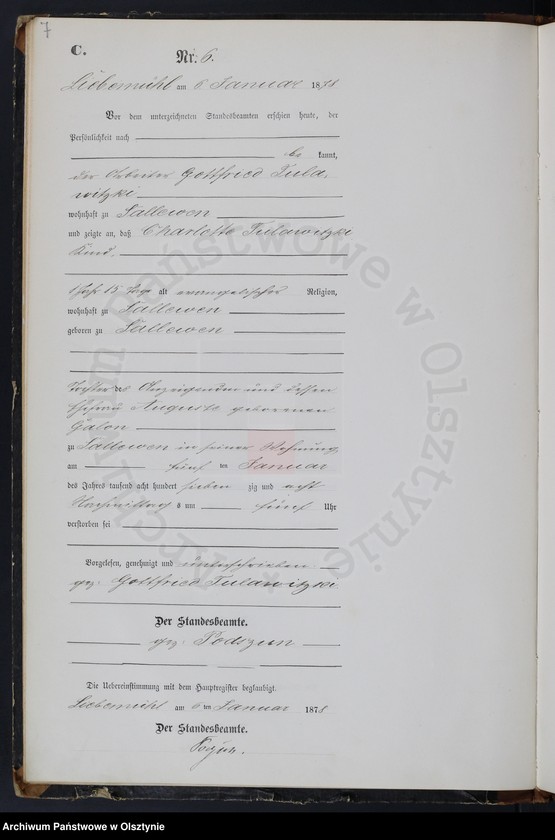 7
C.
Nr. 6.
Liebemühl am 6 Januar 1878
Vor dem unterzeichneten Standesbeamten erschien heute, der
Persönlichkeit nach
be kannt,
der Arbeiter Gottfried Tula-
witzki
wohnhaft zu Tallewen
und zeigte an, daß Charlotte Tulawitzki
Kind,
15 Tage alt evangelischer Religion,
wohnhaft zu Tallewen
geboren zu Tallewen
Tochter des Anzeigenden und dessen
Ehefrau Auguste geborenen
Galon
zu Tallewen in seiner Wohnung
am fünf ten Januar
des Jahres tausend acht hundert sieben zig und acht
Nachmittag s um fünf Uhr
verstorben sei
Vorgelesen, genehmigt und unterschrieben
gez. Gottfried Tulawitzki
Der Standesbeamte.
gez. Podszun
Die Uebereinstimmung mit dem Hauptregister beglaubigt.
Liebemühl am 6 ten Januar 1878
Der Standesbeamte.
Archiwum Państwowe w Olsztynie
Archiwum Państwowe w Olsztynie